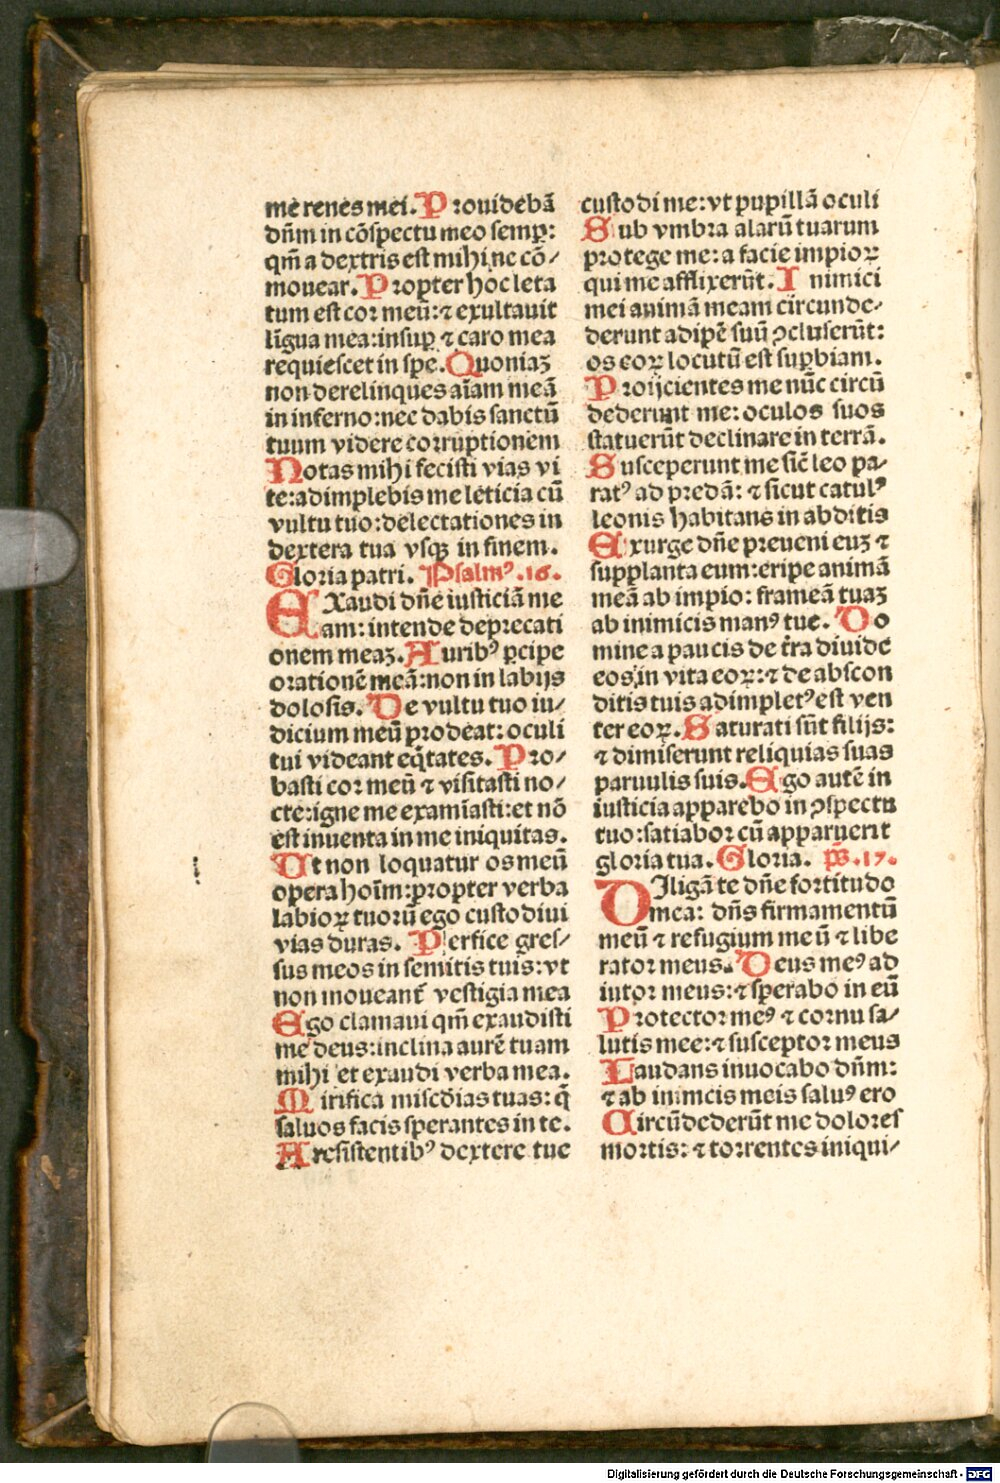 me renes mei. Prouidebā
dn̄m in cōspectu meo semꝑ:
qm̄ a dextris est mihi ne cō⸗
mouear. Propter hoc leta
tum est cor meū: ⁊ exultauit
līgua mea: insuꝑ ⁊ caro mea
requiescet in spe. Quoniaꝫ
non derelinques aīam meā
in inferno: nec dabis sanctū
tuum videre corruptionem
Notas mihi fecisti vias vi
te: adimplebis me leticia cū
vultu tuo: delectationes in
dextera tua vsqꝫ in finem.
Gloria patri. Psalmꝰ .16.
EXaudi dn̄e iusticiā me
am: intende deprecati
onem meaꝫ. Auribꝰ ꝑcipe
orationē meā: non in labijs
dolosis. De vultu tuo iu⸗
dicium meū prodeat: oculi
tui videant eq̄tates. Pro⸗
basti cor meū ⁊ visitasti no⸗
cte: igne me examīasti: et nō
est inuenta in me iniquitas.
Ut non loquatur os meū
opera hoīm: propter verba
labioꝝ tuorū ego custodiui
vias duras. Perfice gres⸗
sus meos in semitis tuis: vt
non moueant̄ vestigia mea
Ego clamaui qm̄ exaudisti
me deus: inclina aurē tuam
mihi et exaudi verba mea.
Mirifica miscdīas tuas: q̄
saluos facis sperantes in te.
A resistentibꝰ dextere tue
custodi me: vt pupillā oculi
Sub vmbra alarū tuarum
protege me: a facie impioꝝ
qui me afflixerūt. Inimici
mei animā meam circunde⸗
derunt adipē suū ꝯcluserūt:
os eoꝝ locutū est suꝑbiam.
Proijcientes me nūc circū
dederunt me: oculos suos
statuerūt declinare in terrā.
Susceperunt me sic̄ leo pa⸗
ratꝰ ad predā: ⁊ sicut catulꝰ
leonis habitans in abditis
Exurge dn̄e preueni euꝫ ⁊
supplanta eum: eripe animā
meā ab impio: frameā tuaꝫ
ab inimicis manꝰ tue. Do
mine a paucis de t̄ra diuide
eos in vita eoꝝ: ⁊ de abscon
ditis tuis adimpletꝰ est ven
ter eoꝝ. Saturati sūt filijs:
⁊ dimiserunt reliquias suas
paruulis suis. Ego autē in
iusticia apparebo in ꝯspectu
tuo: satiabor cū apparuerit
gloria tua. Gloria. p̄s .17.
DIligā te dn̄e fortitudo
mea: dn̄s firmamentū
meū ⁊ refugium meū ⁊ libe
rator meus. Deus meꝰ ad
iutor meus: ⁊ sperabo in eū
Protector meꝰ ⁊ cornu sa⸗
lutis mee: ⁊ susceptor meus
Laudans inuocabo dn̄m:
⁊ ab inimicis meis saluꝰ ero
Circūdederūt me dolores
mortis: ⁊ torrentes iniqui⸗
Digitalisierung gefördert durch die Deutsche Forschungsgemeinschaft - DFG